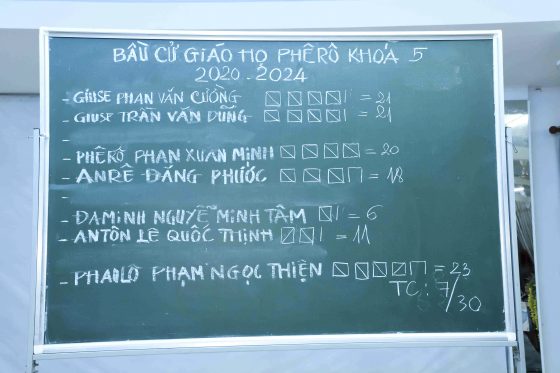 BẦU CỬ GIÁO HỌ PHÊRÔ KHOÁ 5
2020-2024
- GIUSE PHAN VĂN CƯỜNG = 21
- GIUSE TRẦN VĂN DŨNG = 21
-
- PHÊRÔ PHAN XUÂN MINH = 20
- ANRÊ ĐẶNG PHƯỚC = 18
-
- ĐAMINH NGUYỄN MINH TÂM = 6
- ANTÔN LÊ QUỐC THỊNH = 11
- PHAOLÔ PHẠM NGỌC THIỆN = 23
TC: 7/30